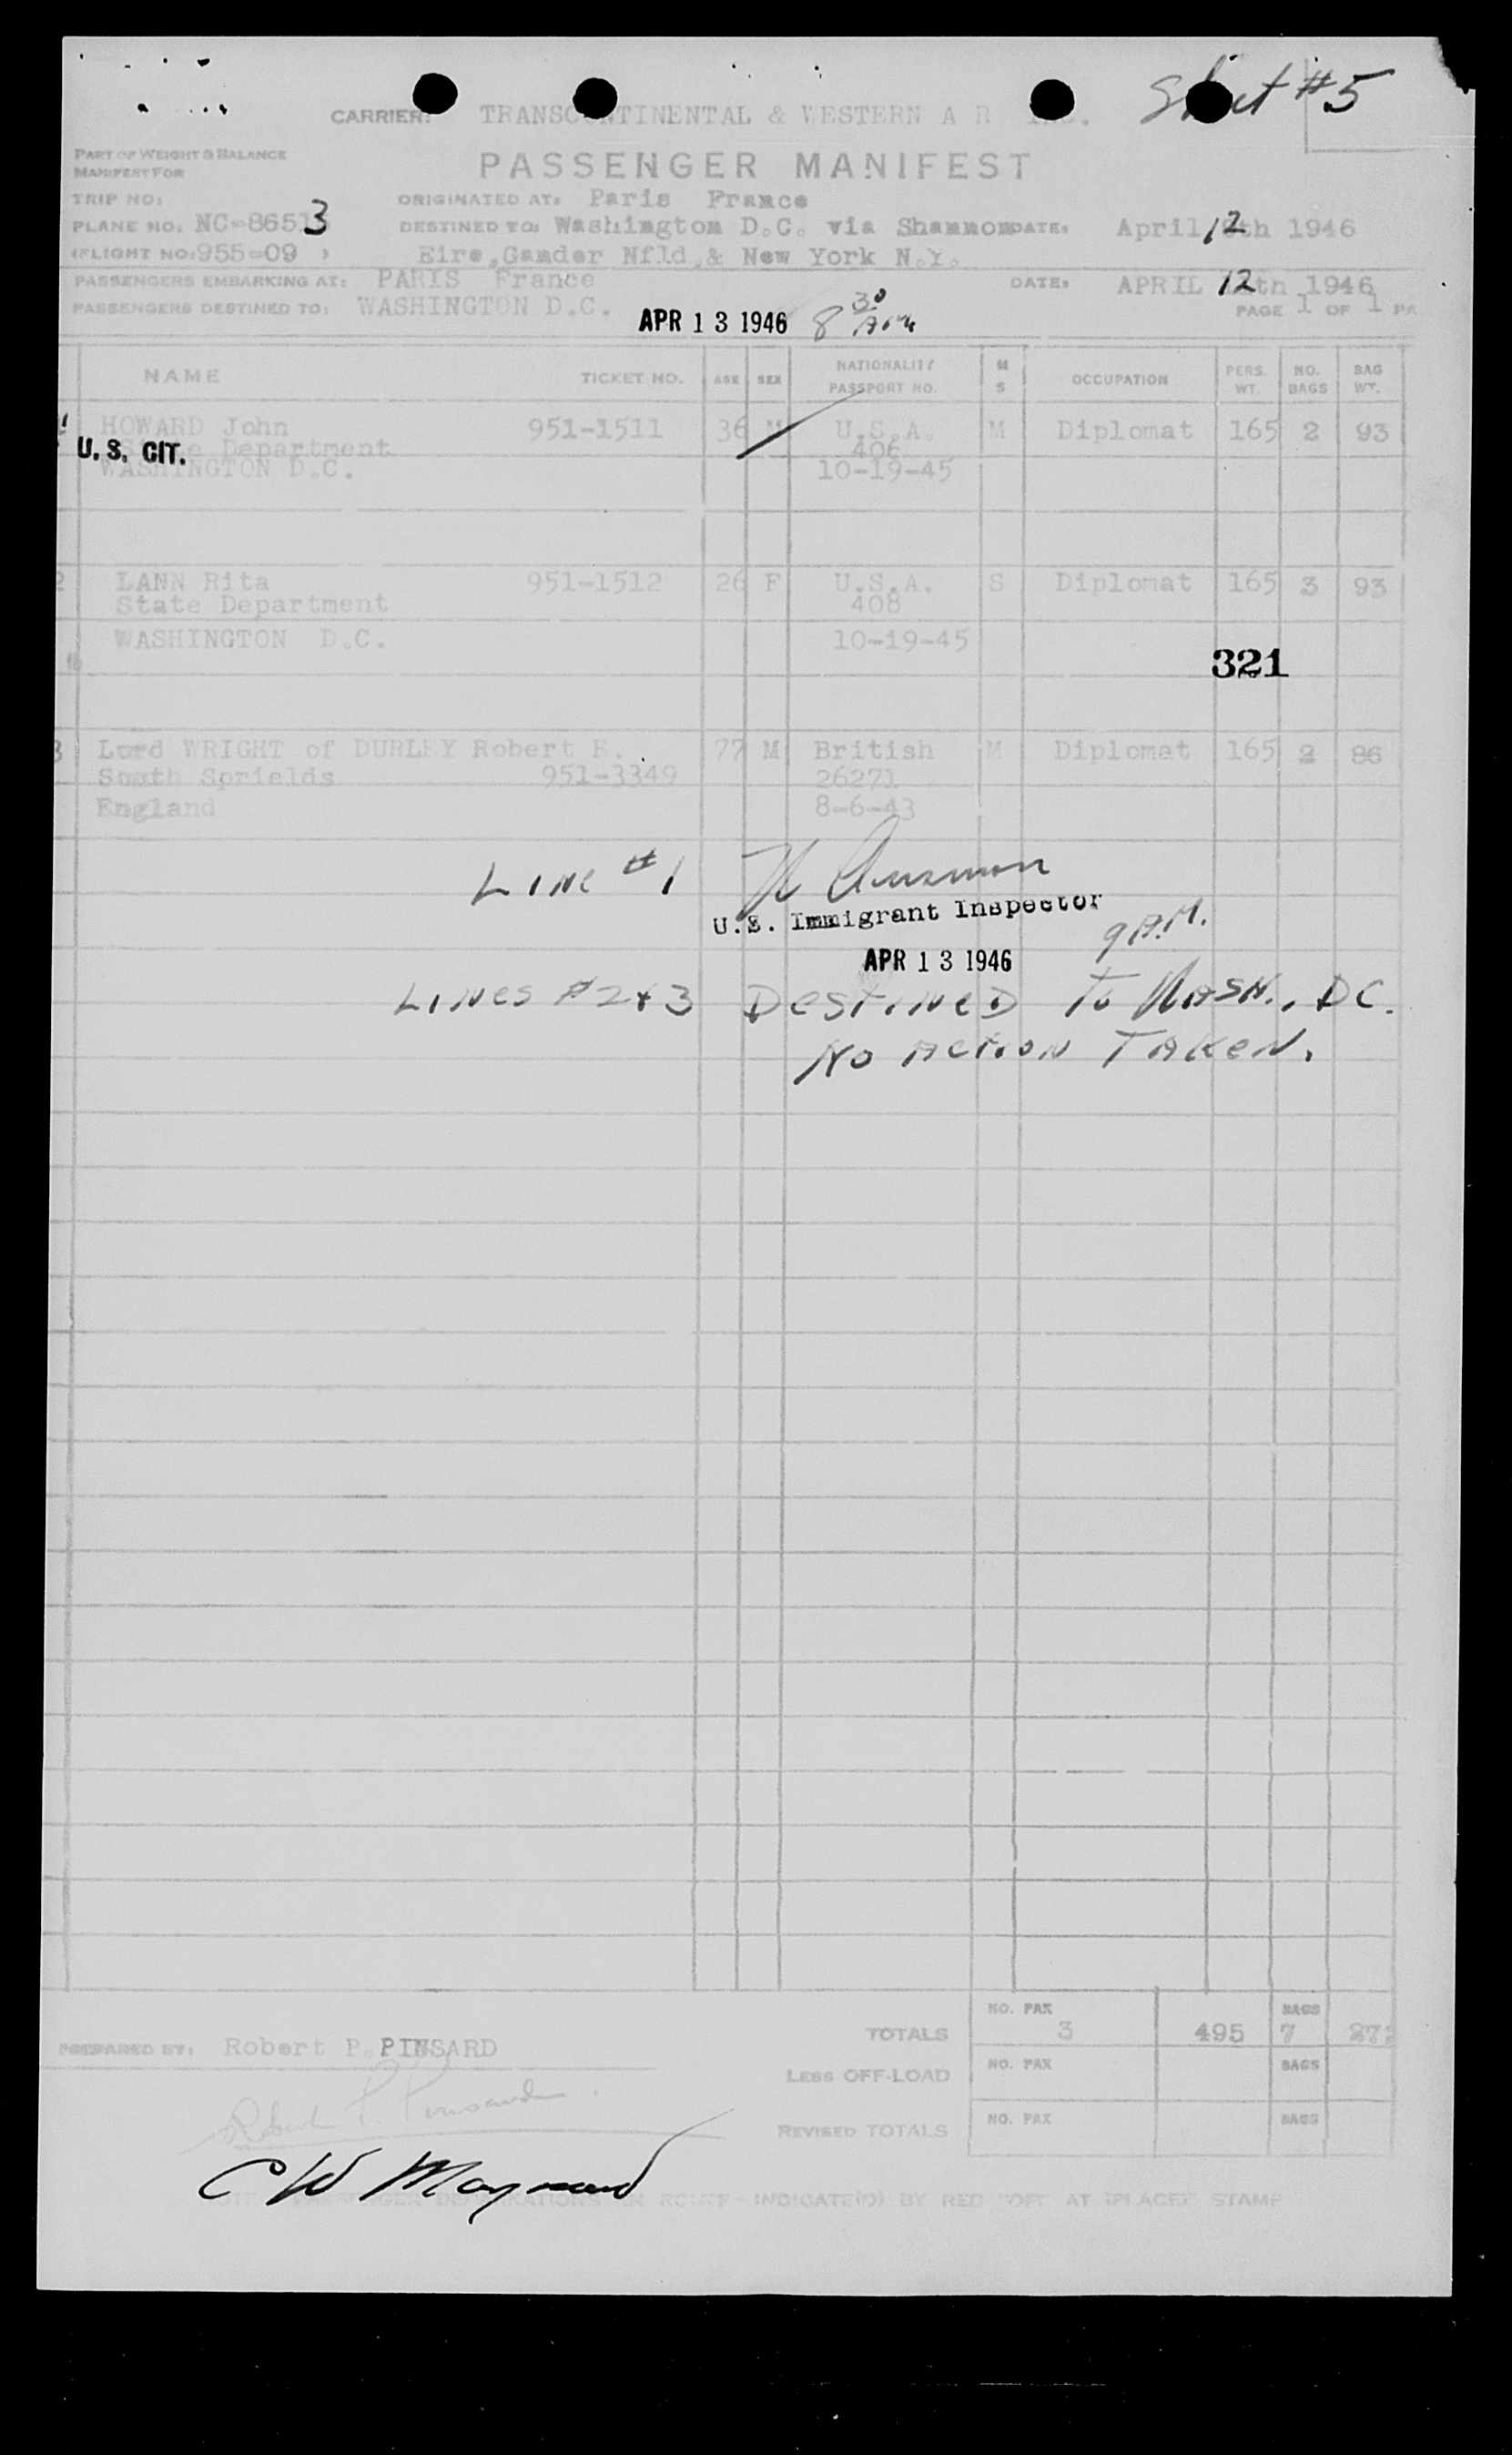 Sheet #5
CARRIER: TRANSCONTINENTAL & WESTERN A R INC.
PART OF WEIGHT & BALANCE
MANIFEST FOR
PASSENGER MANIFEST
TRIP NO: ORIGINATED AT: Paris France
PLANE NO: NC-86513 DESTINED TO: Washington D.C. via Shannon DATE: April 12th 1946
(FLIGHT NO: 955-09 ) Eire, Gander Nfld, & New York N.Y.
PASSENGERS EMBARKING AT: PARIS France DATE: APRIL 12th 1946
PASSENGERS DESTINED TO: WASHINGTON D.C. PAGE 1 OF 1 PA
APR 13 1946 8 30 AM
NAME TICKET NO. AGE SEX NATIONALITY PASSPORT NO. M S OCCUPATION PERS. WT. NO. BAGS BAG WT.
HOWARD John 951-1511 36 M U.S.A. M Diplomat 165 2 93
State Department 406
U.S. CIT.
WASHINGTON D.C. 10-19-45
2 LANN Rita 951-1512 26 F U.S.A. S Diplomat 165 3 93
State Department 408
WASHINGTON D.C. 10-19-45
321
3 Lord WRIGHT of DURLEY Robert 77 M British M Diplomat 165 2 86
South Sprields 951-3349 26271
England 8-6-43
LINE #1
U.S. Immigrant Inspector
9 A.M.
APR 13 1946
LINES #2+3 DESTINED TO WASH., DC.
NO ACTION TAKEN.
TOTALS NO. PAX 3 495 BAGS 7
PREPARED BY: Robert P. PINSARD
LESS OFF-LOAD NO. PAX BAGS
Robert P. Pinsard
REVISED TOTALS NO. PAX BAGS
C W Maynard
EN ROUTE - INDICATE(D) BY RED "OFF AT (PLACE)" STAMP